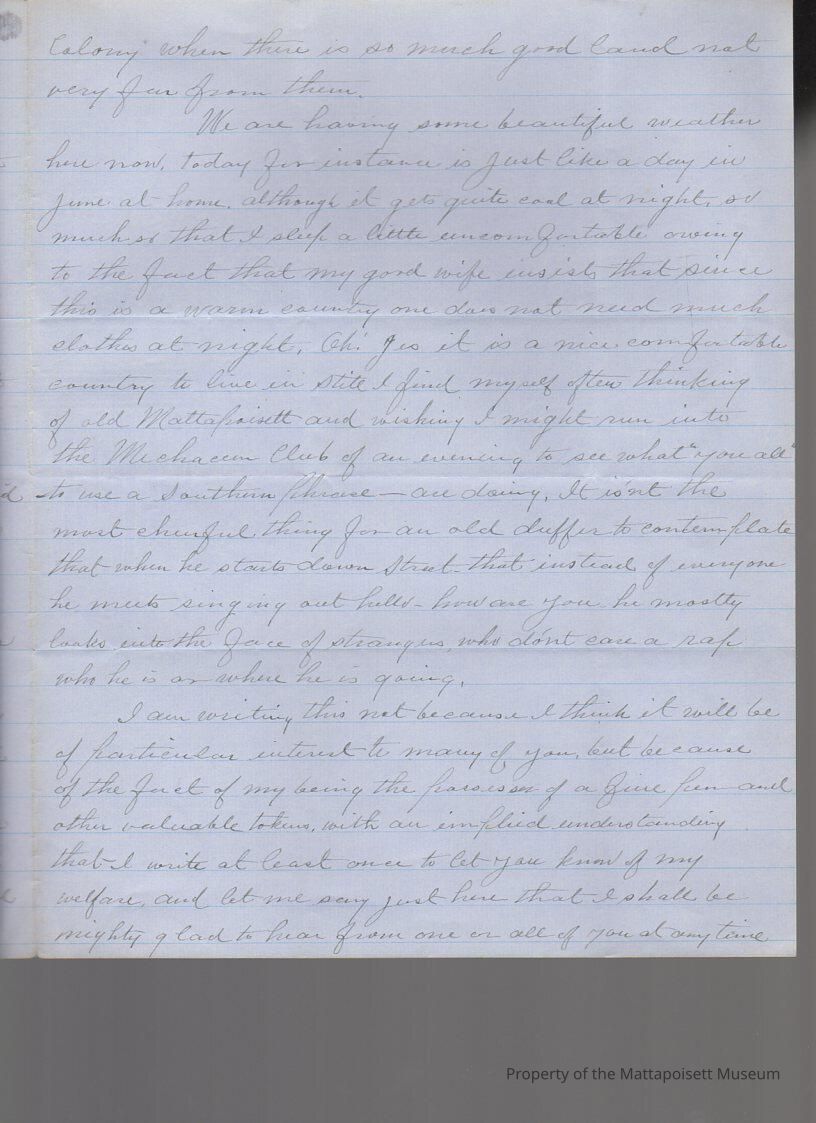 Colony when there is so much good land not
very far from them.
We are having some beautiful weather
here now, today for instance is just like a day in
June at home. although it gets quite cool at night, so
much so that I sleep a little uncomfortable owing
to the fact that my good wife insists that since
this is a warm country one does not need much
clothes at night. Oh! Yes it is a nice comfortable
country to live in still I find myself often thinking
of old Mattapoisett and wishing I might run into
the Mechacum Club of an evening to see what "you all"
to use a Southern phrase — are doing. It is'nt the
most cheerful thing for an old duffer to contemplate
that when he starts down Street - that instead of everyone
he meets singing out hello - how are you he mostly
looks into the face of strangers, who do'nt care a rap
who he is or where he is going.
I am writing this not because I think it will be
of particular interest to many of you, but because
of the fact of my being the possesser of a fine pen and
other valuable tokens, with an implied understanding
that I write at least once to let you know of my
welfare, and let me say just here that I shall be
mighty glad to hear from one or all of you at any time
Property of the Mattapoisett Museum